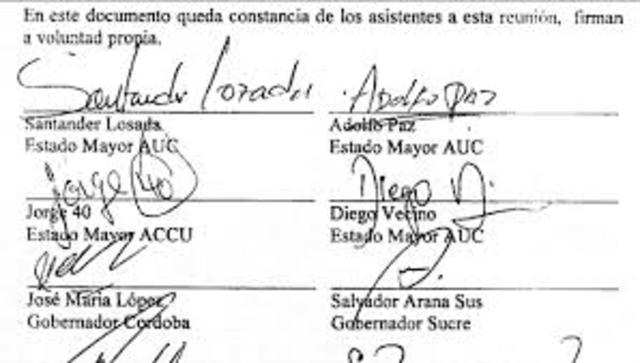 En este documento queda constancia de los asistentes a esta reunión, firman
a voluntad propia.
Santander Lozada
Adolfo Paz
Santander Losada
Estado Mayor AUC
Adolfo Paz
Estado Mayor AUC
Jorge 40
Diego V.
Jorge 40
Estado Mayor ACCU
Diego Vecino
Estado Mayor AUC
José María López
Gobernador Cordoba
Salvador Arana Sus
Gobernador Sucre